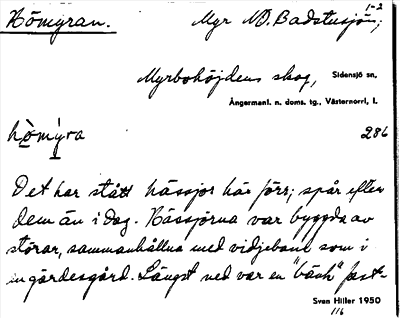 Hömyran. Myr NO. Badstusjön; 1-2
Myrbohöjdens skog, Sidensjö sn,
Ångermanl. n. doms. tg., Västernorrl. l.
hòmýra 286
Det har stått hässjor här förr; spår efter
dem än i dag. Hässjorna var byggda av
störar, sammanhållna med vidjeband som i
en gärdesgård. Längst ned var en "bänk" fast-
Sven Hiller 1950
11/6